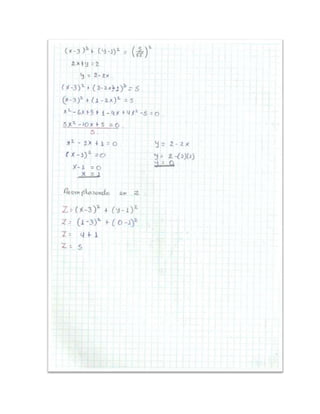 (x-3)² + (y-1)² = (5/√5)²
2x+y=2
y = 2-2x
(x-3)² + (2-2x-1)² = 5
(x-3)² + (1-2x)² = 5
x² - 6x+9+1-4x+4x²-5=0
5x² - 10x+5 = 0
5
x² - 2x + 1 = 0 y = 2-2x
(x-1)² = 0 y = 2-(2)(1)
x-1 = 0 y = 0
x = 1
Reemplazando en Z
Z = (x-3)² + (y-1)²
Z = (1-3)² + (0-1)²
Z = 4+1
Z = 5